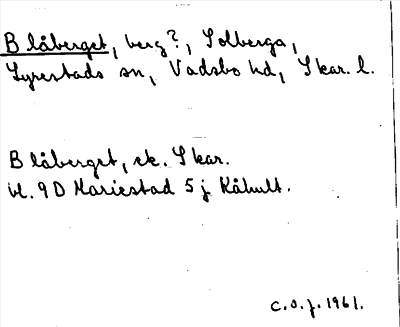 Blåberget, berg?, Solberga,
Lyrestads sn, Vadsbo hd, Skar. l.
Blåberget, ek. Skar.
bl. 9D Mariestad 5 j Kåhult.
c.o.j. 1961.